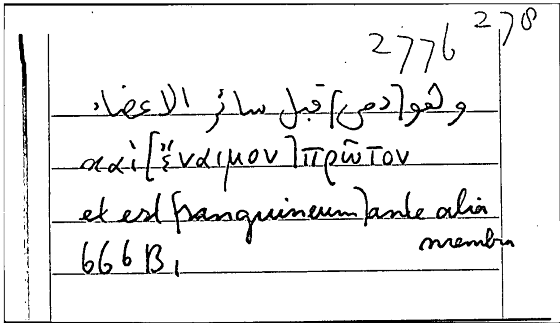 2776 278
وهو [دمى] قبل سائر الاعضاء
καὶ [ἔναιμον] πρῶτον
et est [sanguineum] ante alia
membra
666 B 1